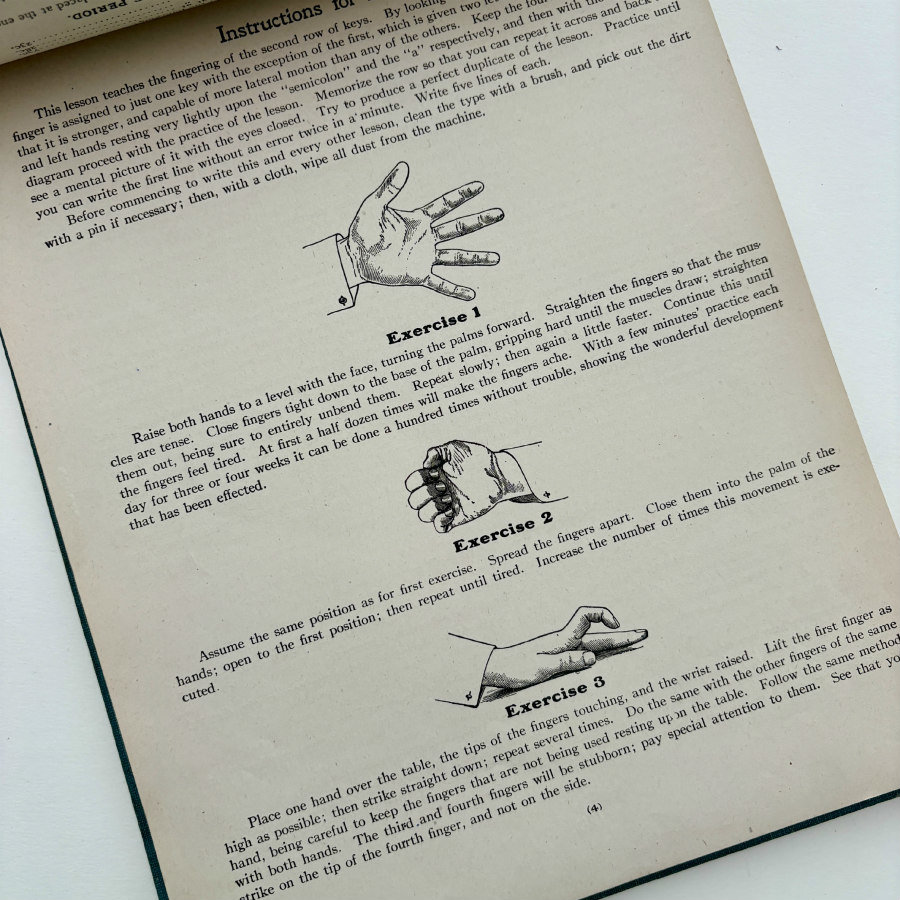 PERIOD.
laced at the end
25c.
Instructions for
This lesson teaches the fingering of the second row of keys. By looking
finger is assigned to just one key with the exception of the first, which is given two
that it is stronger, and capable of more lateral motion than any of the others. Keep the
and left hands resting very lightly upon the "semicolon" and the "a" respectively, and then with the
diagram proceed with the practice of the lesson. Memorize the row so that you can repeat it across and back
see a mental picture of it with the eyes closed. Try to produce a perfect duplicate of the lesson. Practice until
you can write the first line without an error twice in a minute. Write five lines of each.
Before commencing to write this and every other lesson, clean the type with a brush, and pick out the dirt
with a pin if necessary; then, with a cloth, wipe all dust from the machine.
Exercise 1
Raise both hands to a level with the face, turning the palms forward. Straighten the fingers so that the mus-
cles are tense. Close fingers tight down to the base of the palm, gripping hard until the muscles draw; straighten
them out, being sure to entirely unbend them. Repeat slowly; then again a little faster. Continue this until
the fingers feel tired. At first a half dozen times will make the fingers ache. With a few minutes' practice each
day for three or four weeks it can be done a hundred times without trouble, showing the wonderful development
that has been effected.
Exercise 2
Assume the same position as for first exercise. Spread the fingers apart. Close them into the palm of the
hands; open to the first position; then repeat until tired. Increase the number of times this movement is exe-
cuted.
Exercise 3
Place one hand over the table, the tips of the fingers touching, and the wrist raised. Lift the first finger as
high as possible; then strike straight down; repeat several times. Do the same with the other fingers of the same
hand, being careful to keep the fingers that are not being used resting upon the table. Follow the same method
with both hands. The third and fourth fingers will be stubborn; pay special attention to them. See that
strike on the tip of the fourth finger, and not on the side.
(4)